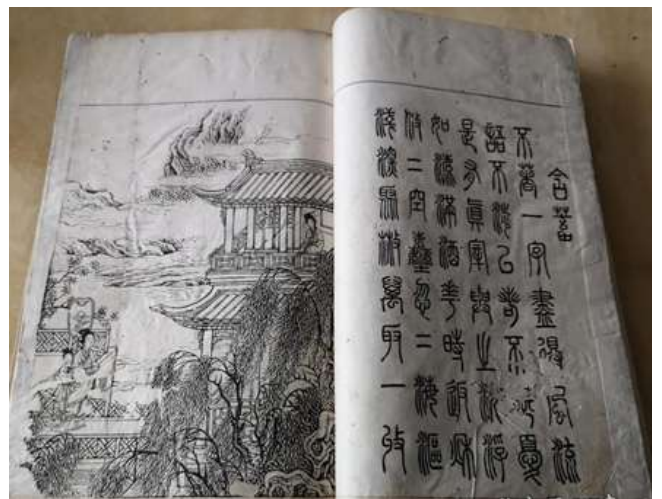 含蓄
不著一字盡得風流
語不涉己若不堪憂
是有眞宰與之沈浮
如淥滿酒花時返秋
悠二空塵忽二海漚
淺深聚散萬取一收